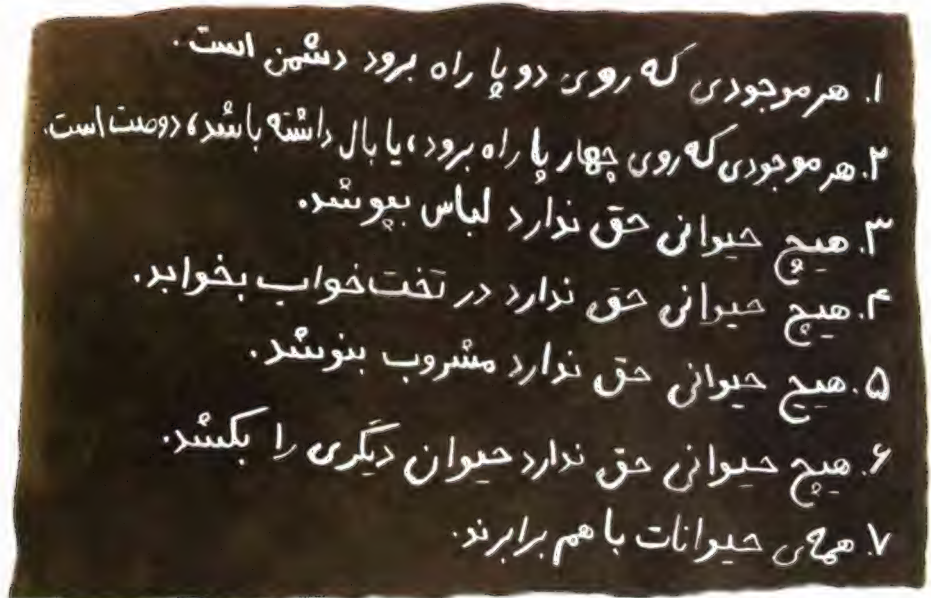 ۱. هر موجودی که روی دو پا راه برود دشمن است.
۲. هر موجودی که روی چهار پا راه برود، یا بال داشته باشد، دوست است.
۳. هیچ حیوانی حق ندارد لباس بپوشد.
۴. هیچ حیوانی حق ندارد در تخت‌خواب بخوابد.
۵. هیچ حیوانی حق ندارد مشروب بنوشد.
۶. هیچ حیوانی حق ندارد حیوان دیگری را بکشد.
۷. همه‌ی حیوانات با هم برابرند.